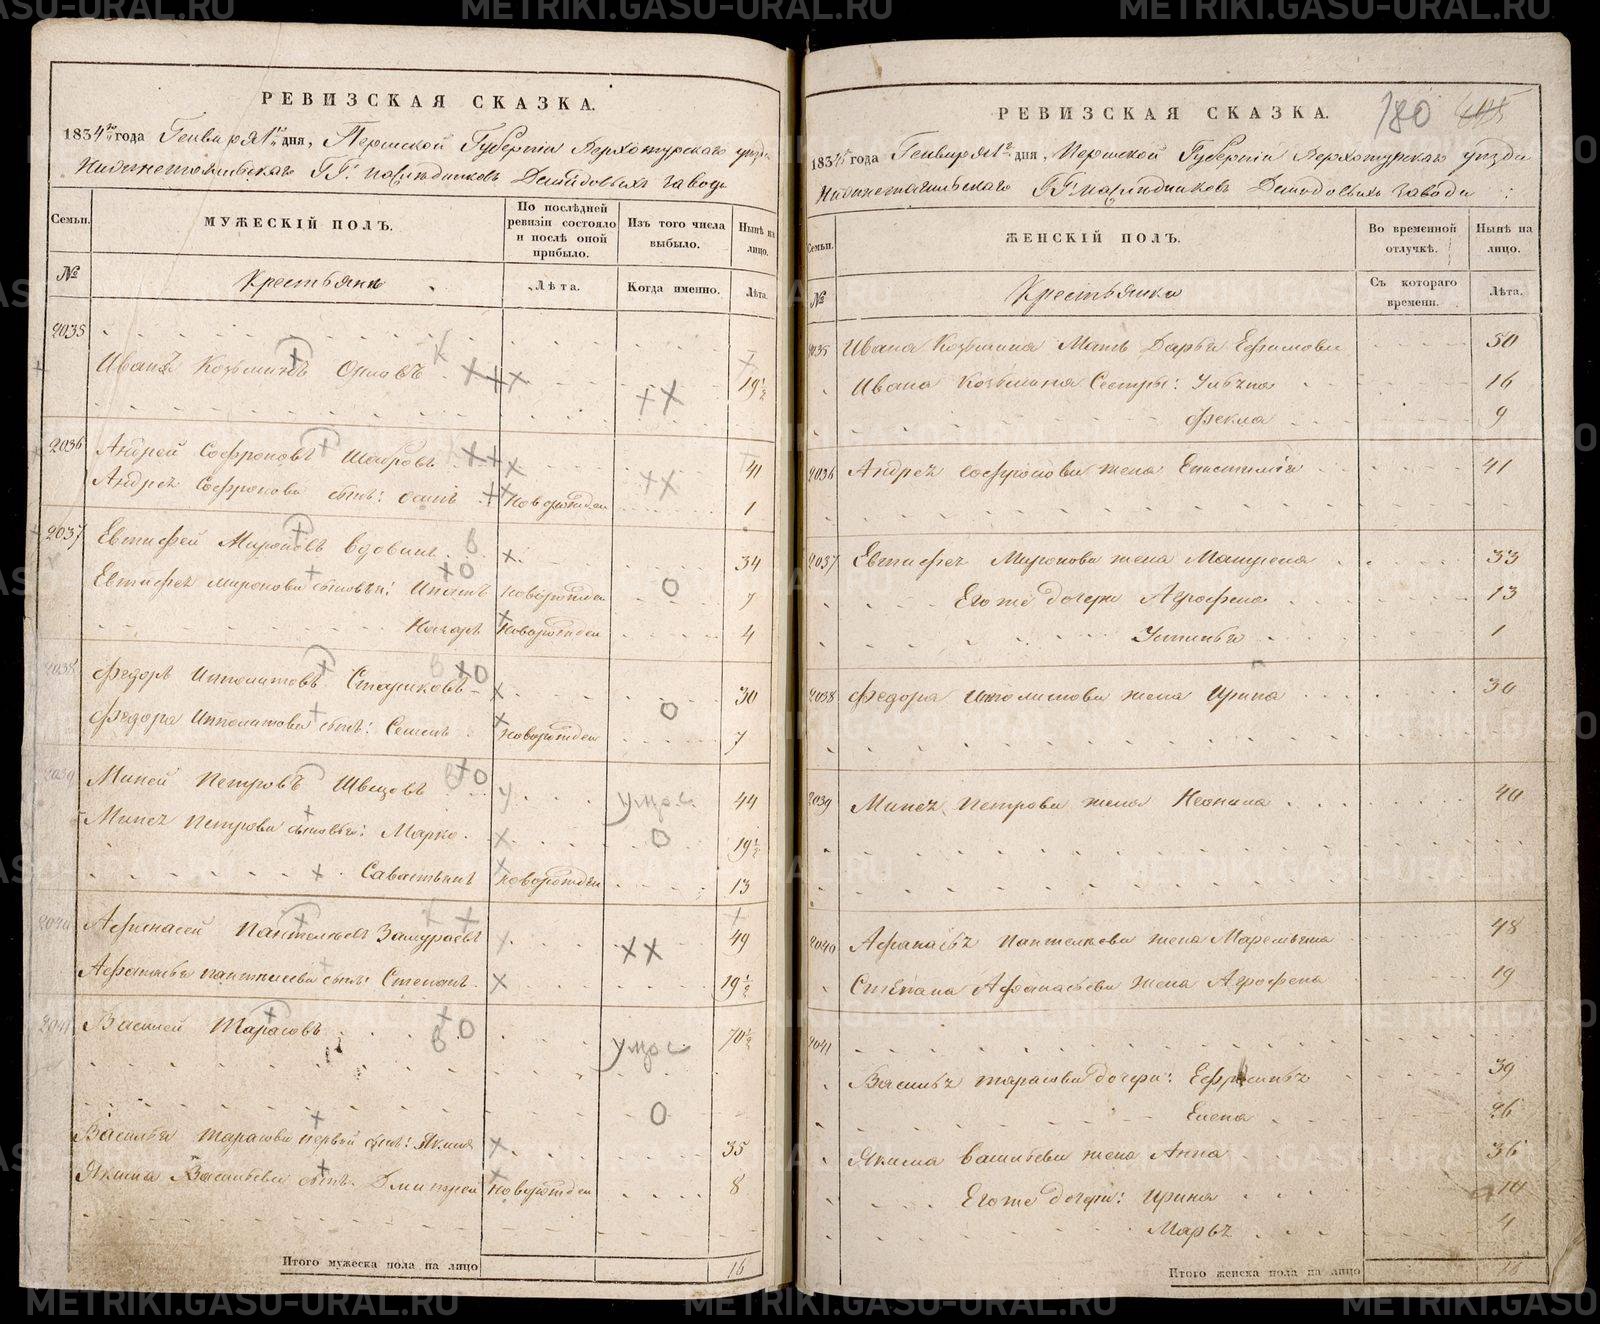 РЕВИЗСКАЯ СКАЗКА.
1834го года Генваря 1го дня, Пермской Губерніи Верхотурскаго уезда
Нижнетагильскаго ГГ: наследниковъ Демидовыхъ завода
Семьи.
МУЖЕСКІЙ ПОЛЪ.
По послѣдней ревизіи состояло и послѣ оной прибыло.
Изъ того числа выбыло.
Нынѣ на лицо.
№
Крестьяне
Лѣта.
Когда именно.
Лѣта.
2035
Иванъ Козьминъ 19½
2036 Андрей Софроновъ Шавровъ 41
Андрея Софронова сынъ: Осипъ новорожден 1
2037 Евтифей Мироновъ Вдовинъ 34
Евтифея Миронова сыновья: Ипатъ новорожден 7
Назаръ новорожден 4
2038 Федоръ Ипполитовъ Стариковъ 30
Федора Ипполитова сынъ: Семенъ новорожден 7
2039 Миней Петровъ Швецовъ умре 44
Минея Петрова сыновья: Марко 19½
Савастьянъ новорожден 13
2040 Афанасей Пантелеевъ Замураевъ 49
Афанасья Пантелеева сынъ: Степанъ 19½
2041 Василей Тарасовъ умре 70½
Василья Тарасова первой сынъ: Якимъ 35
Якима Васильева сынъ Дмитрей новорожден 8
Итого мужеска пола на лицо 16
РЕВИЗСКАЯ СКАЗКА.
180
1834 года Генваря 1го дня, Пермской Губерніи Верхотурскаго уезда
Нижнетагильскаго ГГ: наследниковъ Демидовыхъ завода
Семьи.
ЖЕНСКІЙ ПОЛЪ.
Во временной отлучкѣ.
Нынѣ на лицо.
№
Крестьянки
Съ котораго времени.
Лѣта.
2035 Ивана Козьмина Мать Дарья Ефимова 50
Ивана Козьмина Сестры: Ульяна 16
Фекла 9
2036 Андрея Софронова жена Епистимія 41
2037 Евтифея Миронова жена Матрена 33
Его же дочери Агрофена 13
Устинья 1
2038 Федора Ипполитова жена Ирина 30
2039 Минея Петрова жена Неонила 40
2040 Афанасья Пантелеева жена Маремьяна 48
Степана Афанасьева жена Агрофена 19
2041
Василья Тарасова дочери: Ефросинья 39
Елена 26
Якима Васильева жена Анна 36
Его же дочери: Ирина 10
Марья 4
Итого женска пола на лицо
METRIKI.GASU-URAL.RU